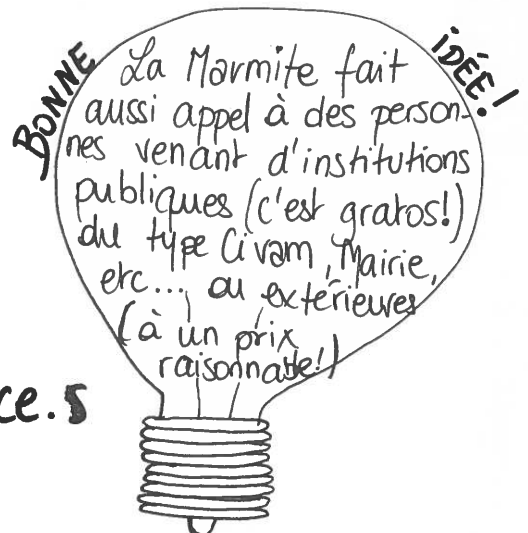 BONNE IDÉE!
La Marmite fait
aussi appel à des person-
nes venant d'institutions
publiques (c'est gratos!)
du type Civam, Mairie,
etc... ou extérieures
(à un prix
raisonnable!)
ce.s